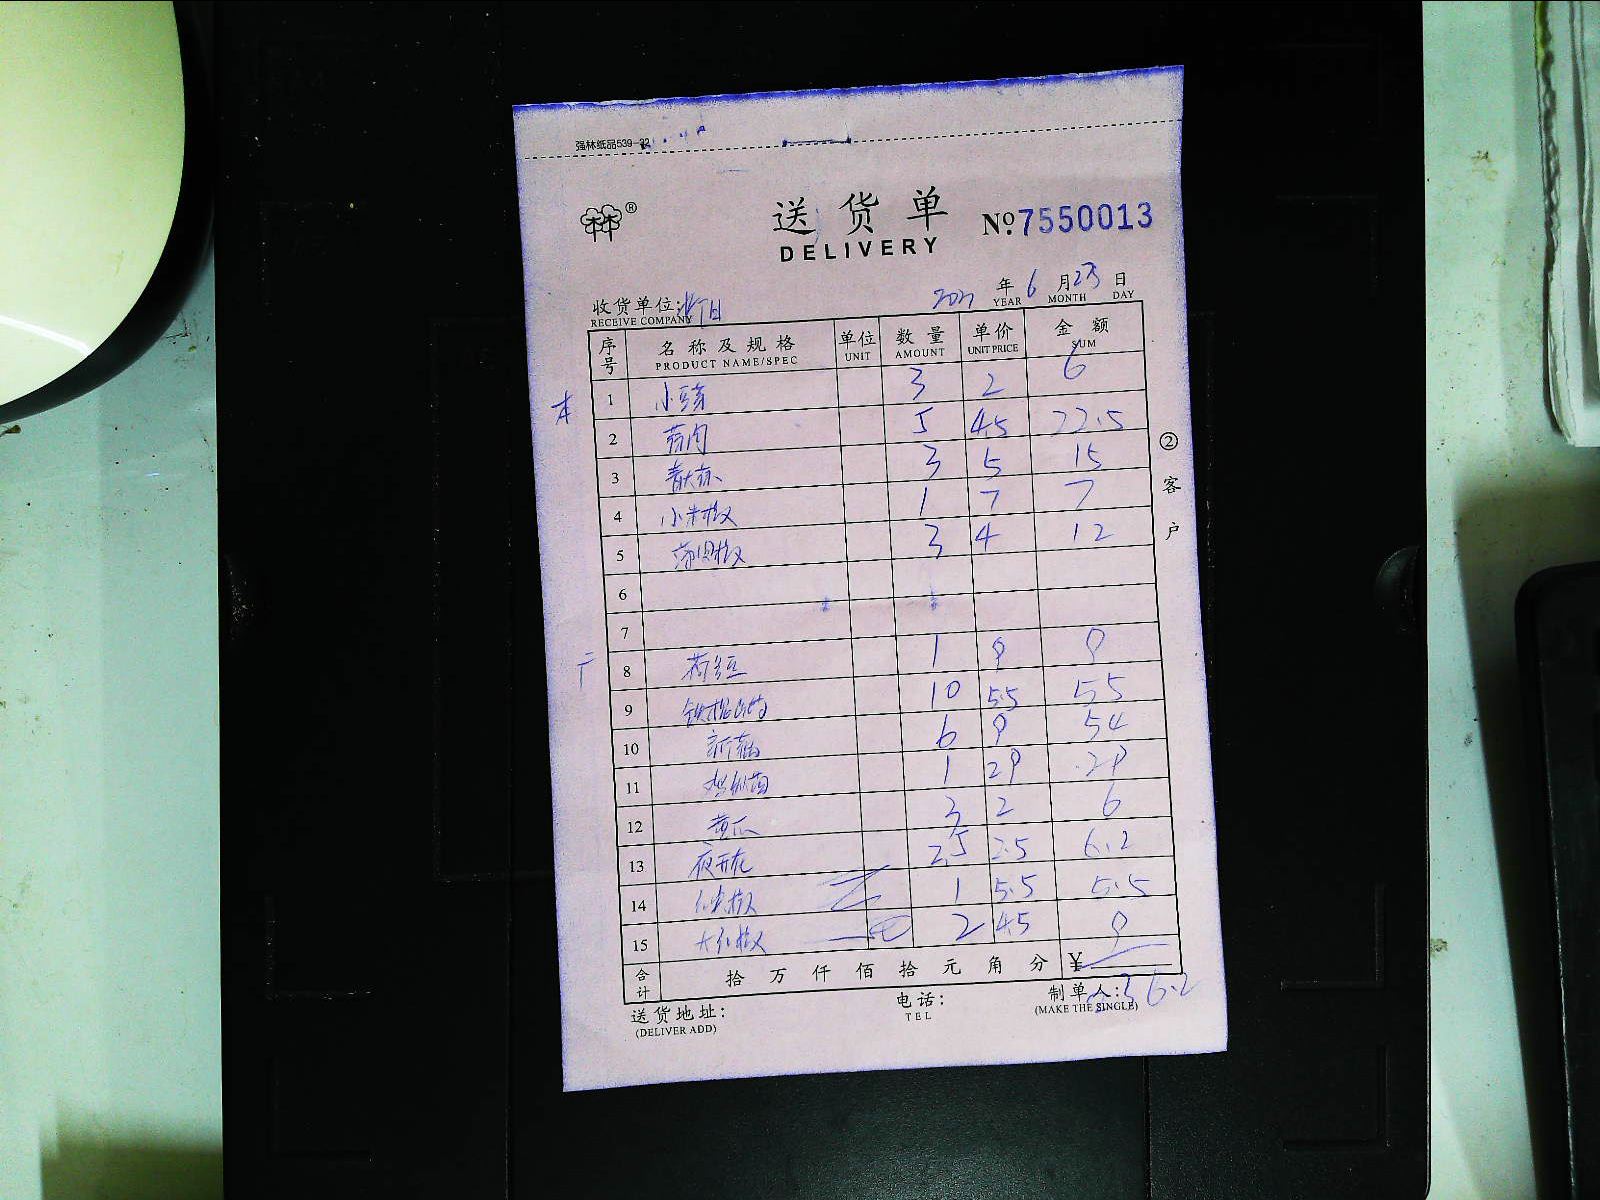 强林纸品539-32
送货单 №7550013
DELIVERY
收货单位:
RECEIVE COMPANY
2021年6月23日
YEAR MONTH DAY
序号 名称及规格 单位 数量 单价 金额
PRODUCT NAME/SPEC UNIT AMOUNT UNIT PRICE SUM
本
1 小豆芽 3 2 6
2 5 4.5 22.5
3 青大蒜 3 5 15
4 小米椒 1 7 7
5 3 4 12
6
7
8 1 9 9
9 铁棍山药 10 5.5 55
10 6 9 54
11 鸡枞菌 1 29 29
12 黄瓜 3 2 6
13 夜开花 2.5 2.5 6.2
14 1 5.5 5.5
15 大红椒 2 4.5 9
合计 拾万仟佰拾元角分 ¥
236.2
送货地址:
(DELIVER ADD)
电话:
TEL
制单人:
(MAKE THE SINGLE)
②客户